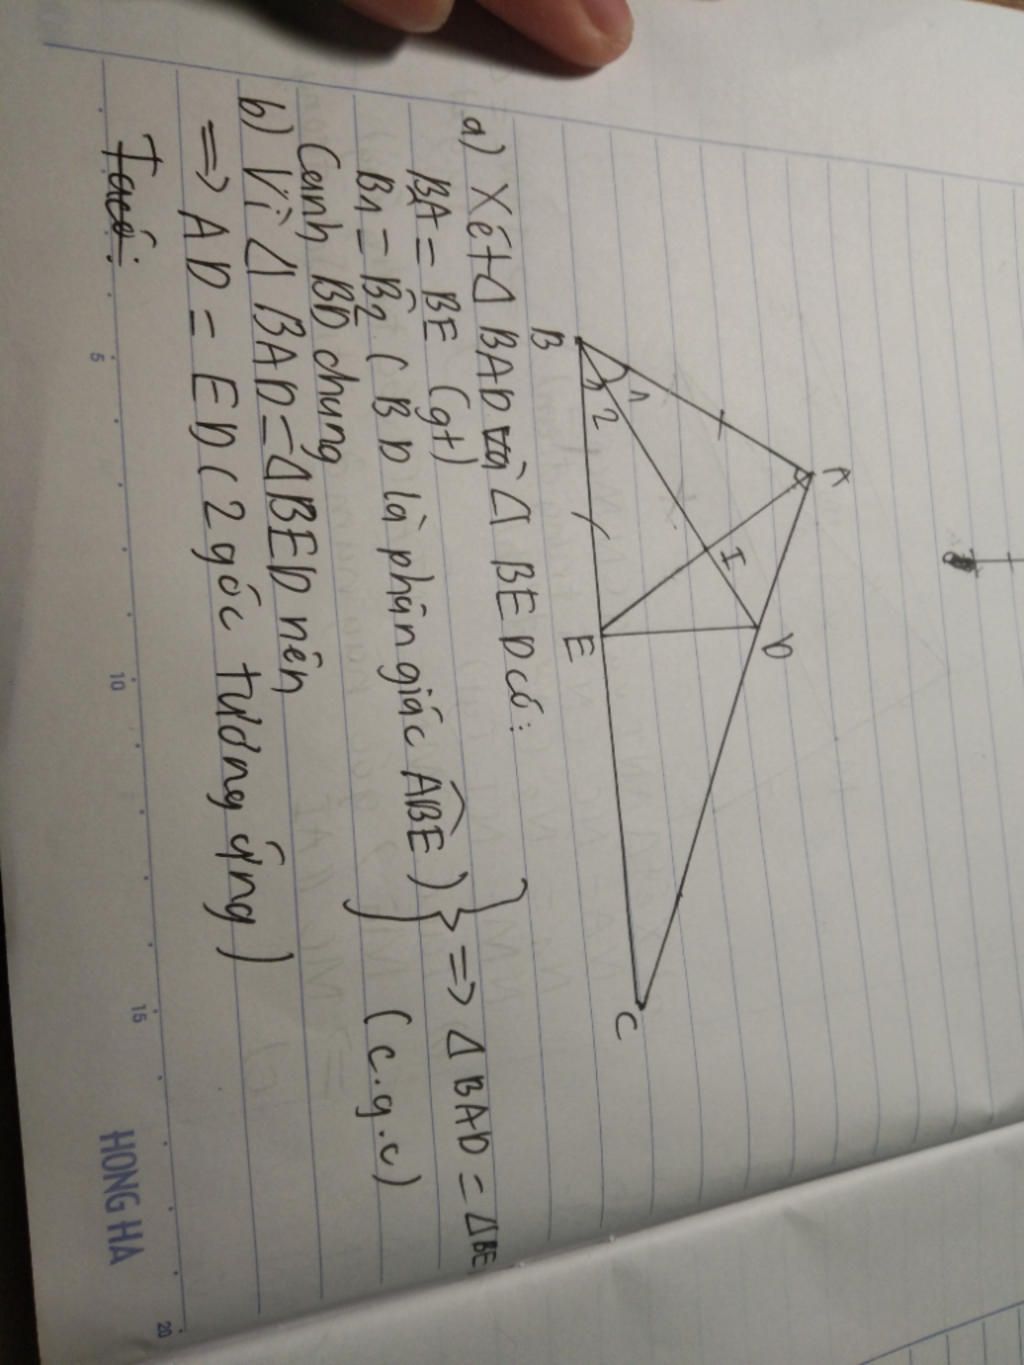 A
B
1
2
I
D
E
C
a) Xét Δ BAD và Δ BED có:
BA = BE (gt)
B1 = B̂2 ( BD là phân giác ABE ) } => Δ BAD = Δ BE
Cạnh BD chung (c.g.c)
b) Vì Δ BAD = Δ BED nên
=> AD = ED ( 2 góc tương ứng )
Ta có:
5
10
15
20
HONG HA